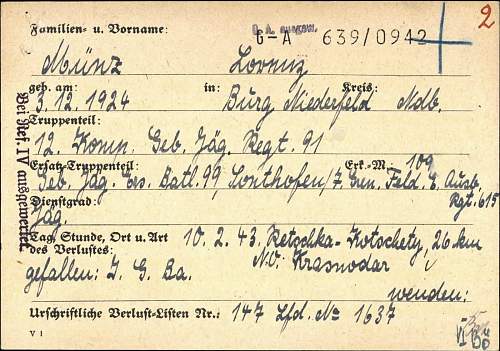 2
Familien- u. Vorname:
G-A 639/0942
Münz Lorenz
geb. am: in: Kreis:
3.12.1924 Burg Niederfeld Mdb.
Truppenteil:
12. Komp. Geb. Jäg. Regt. 91
Ersatz-Truppenteil: Erk.-M: 109
Geb. Jäg. Ers. Batl. 99, Sonthofen/7. Gren. Feld. E. Ausb.
Rgt. 615
Dienstgrad:
Jäg.
Tag, Stunde, Ort u. Art
des Verlustes:
10.2.43. Retschka-Kotschety, 26 km
NO. Krasnodar
gefallen: I. G. Ba.
wenden:
Urschriftliche Verlust-Listen Nr.: 147 Lfd. No 1637
V 1
Bei Ref. IV ausgewertet